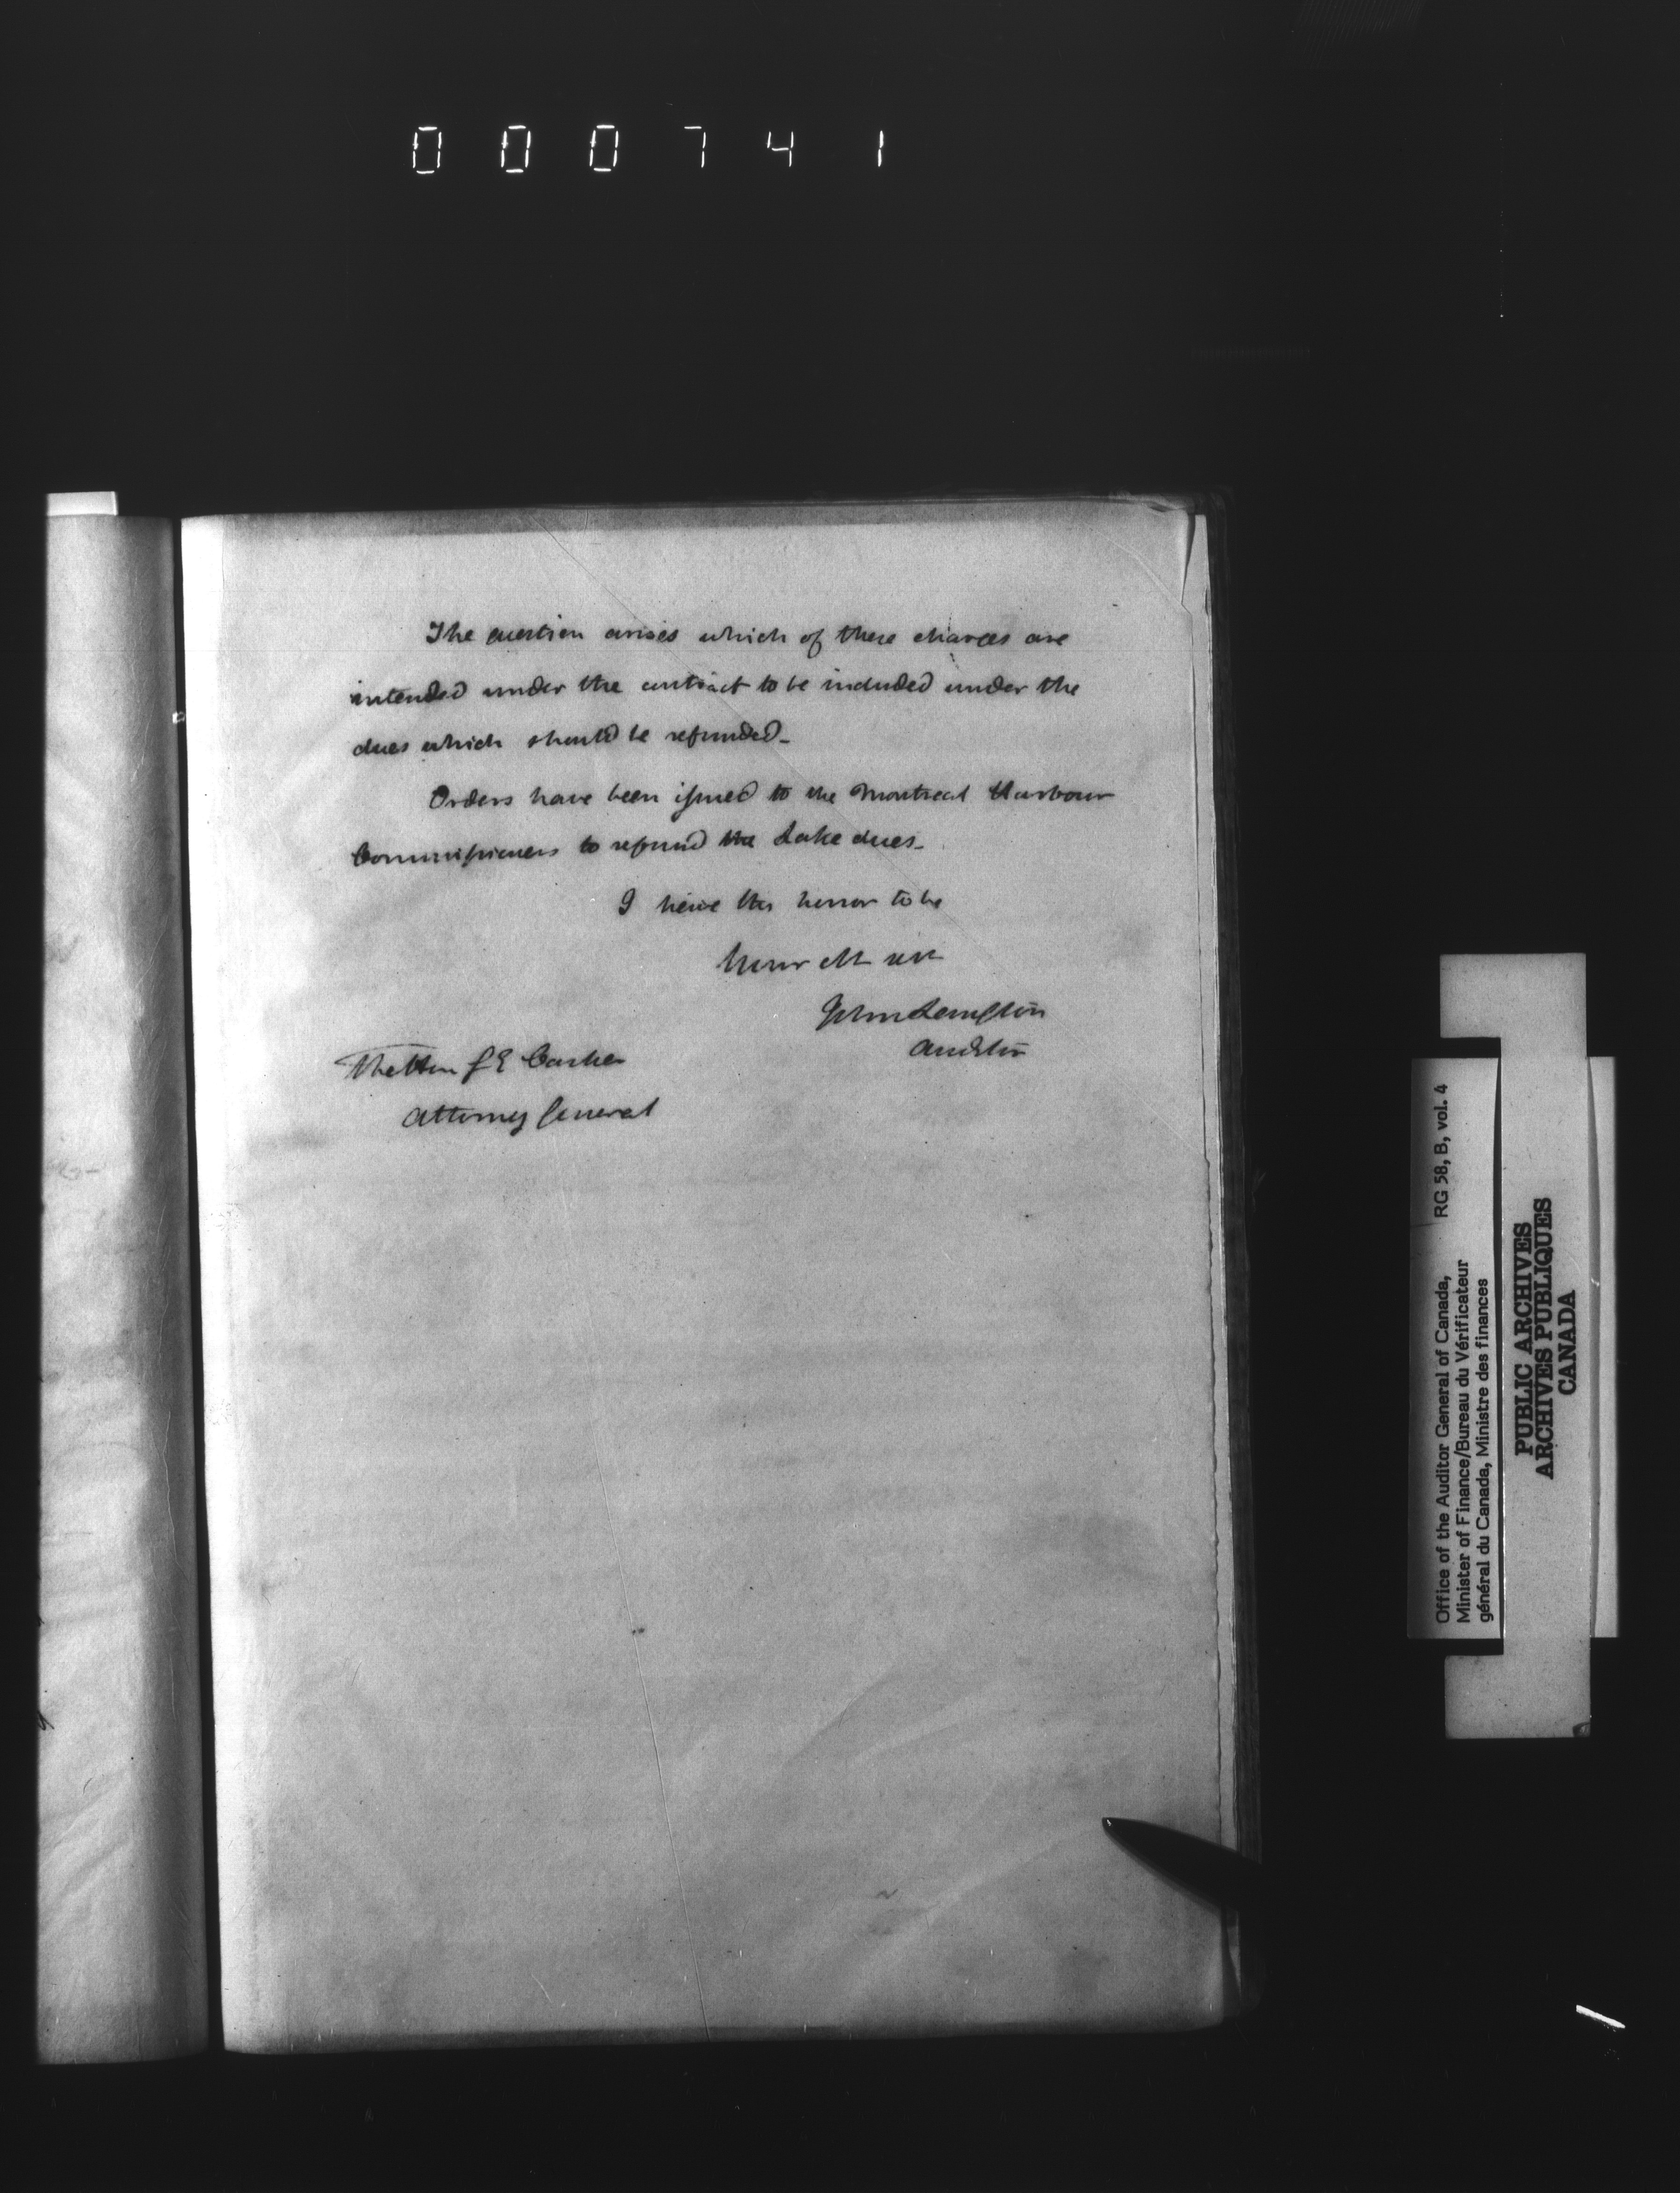 000741
The question arises which of these charges are
intended under the contract to be included under the
dues which should be refunded_
Orders have been issued to the Montreal Harbour
Commissioners to refund the Lake dues_
I have the honor to be
Your obt sert
John Langton
Auditor
The Hon G E Cartier
Attorney General
Office of the Auditor General of Canada, RG 58, B, vol. 4
Minister of Finance/Bureau du Vérificateur
général du Canada, Ministre des finances
PUBLIC ARCHIVES
ARCHIVES PUBLIQUES
CANADA